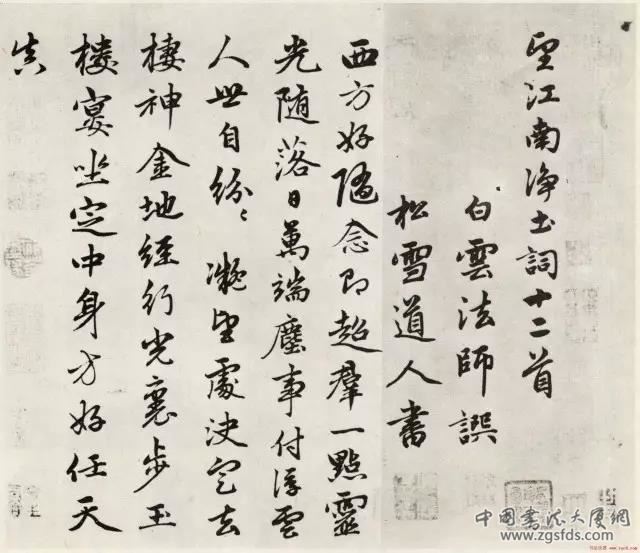 望江南淨土詞十二首
白雲法師譔
松雪道人書
西方好隨念即超羣一點靈
光隨落日萬端塵事付浮雲
人世自紛〻凝望處決定去
棲神金地經行光裏步玉
樓宴坐定中身方好任天
真
中国书法大厦网
www.zgsfds.com